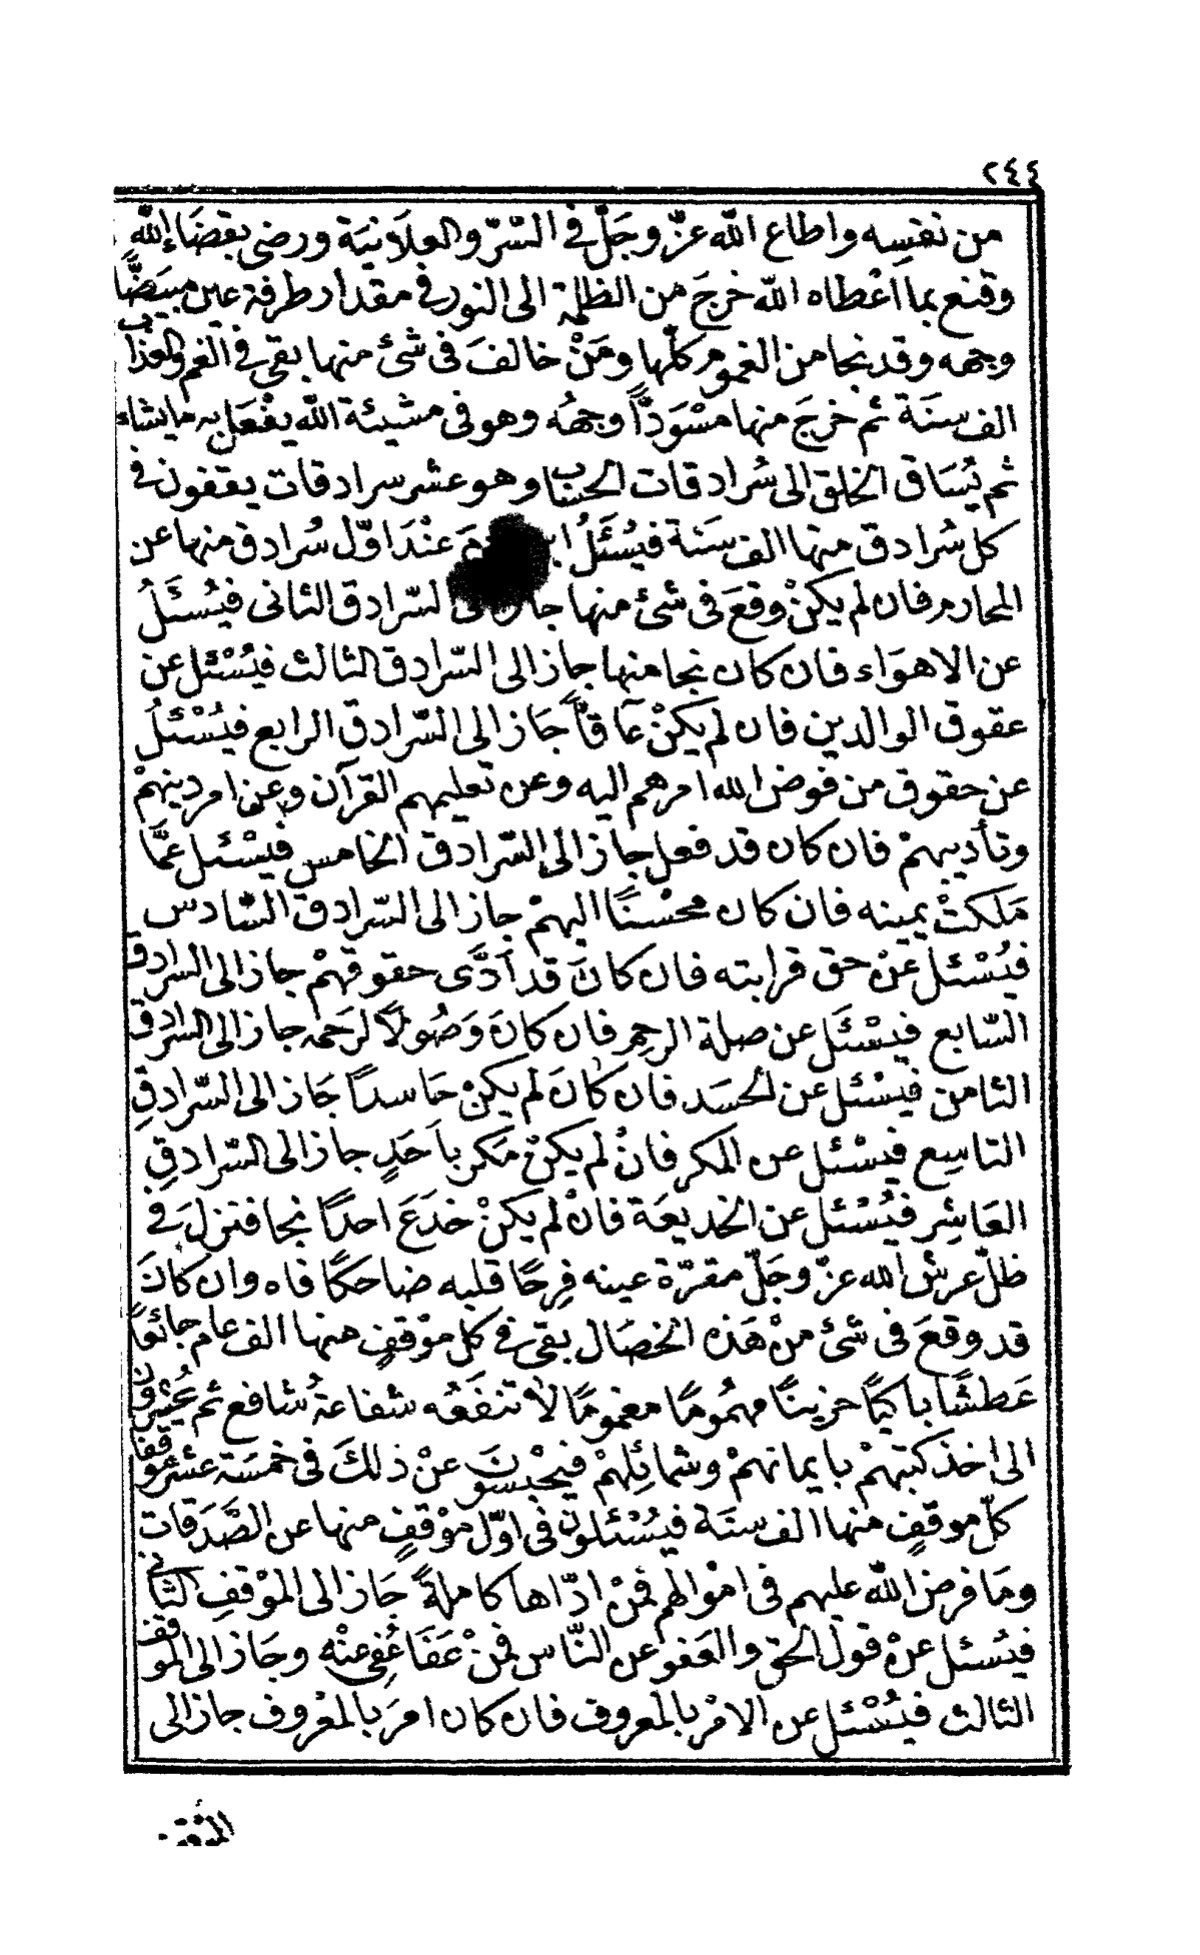 ٢٤٤
من نفسِه واطاع الله عزّ وجَلّ فى السّرّ والعلَانيَة ورضى بقضَاءِ الله
وقنع بما اعْطاه الله خرجَ من الظلمة الى النور فى مقدار طرفة عين مبيَضًّا
وجهه وقد نجا من الغموم كلّها ومَنْ خالفَ فى شئ منها بقى فى الغم والعذاب
الف سنَة ثم خرجَ منها مسْوَدًّا وجهُه وهو فى مشيئة الله يفْعَل به ما يشاء
ثم يُسَاق الخلق الى سُرادقات الحسَاب وهو عشر سرادقات يقفون فى
كل سُرادق منها الف سَنة فيُسْئَلُ عنْدَ اوّل سُرادق منها عن
المحارم فان لم يكنْ وقعَ فى شئ منها جاز السّرادق الثانى فيُسئَلُ
عن الاهوَاء فان كان نجا منها جاز الى السّرادق الثالث فيُسْئل عن
عقوق الوالدين فان لم يكنْ عَاقًّا جَاز الى السّرادق الرابع فيُسْئَلُ
عن حقوق من فوض الله امرهم اليه وعن تعليمهم القرآن وعن امر دينهمْ
وتأديبهمْ فان كان قد فعل جاز الى السّرادق الخامس فيُسْئل عمَّا
مَلكتْ يمينه فان كان محْسنًا اليهمْ جاز الى السّرادق السّادس
فيُسْئل عنْ حق قرابته فان كانَ قد أدَّى حقوقهمْ جاز الى السرادق
السّابع فيسْئَل عن صلة الرحِم فان كانَ وَصُولًا لرَحمه جاز الى السرادق
الثامن فيُسْئل عن الحسَد فان كانَ لم يكنْ حَاسداً جَاز الى السّرادقِ
التاسِع فيسْئل عن المكر فانْ لم يكنْ مَكر باَحَدٍ جاز الى السّرادقِ
العَاشِر فيُسْئل عن الخديعَة فانْ لم يكنْ خدَعَ احدًا نجا فنزلَ فى
ظلّ عرش الله عزّ وجَلّ مقرّة عينه فِرحًا قلبه ضاحكًا فاه وان كانَ
قد وقعَ فى شئ منْ هَذه الخصَال بقى فى كل موْقفٍ منها الف عام جائعًا
عَطشًا باكيًا حزينًا مهمُومًا مغمومًا لا تنفَعُه شفاعةُ شافع ثم يُحْشرون
الى اخذ كتبهمْ بايمانهمْ وشمائلهمْ فيحْبسونَ عنْ ذلكَ فى خمسَة عشر موقفا
كلّ موقفٍ منها الف سنَة فيُسْئلون فى اوّل موْقفٍ منها عن الصَّدَقات
ومَا فرض الله عليهم فى امْوالهم فمنْ ادّاها كاملةً جَاز الى الموْقفِ الثانى
فيُسْئل عنْ قول الحق والعَفو عن النّاس فمنْ عَفَا عُفى عنْه وجَاز الى الموقف
الثالث فيُسْئل عن الامْر بالمعروف فان كان امرَ بالمعْروف جاز الى